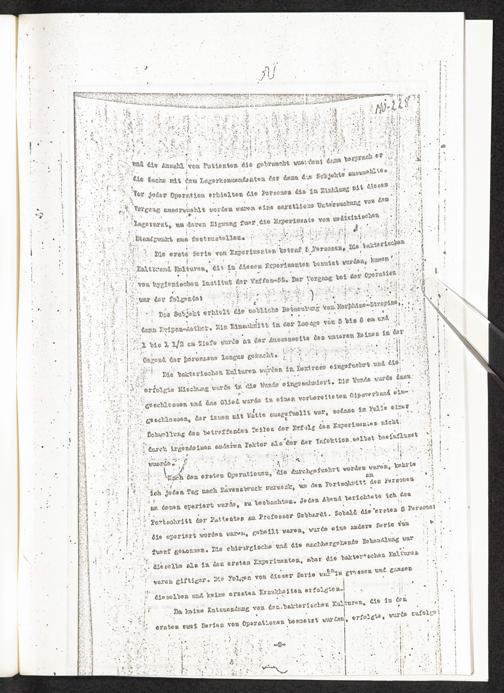 NO-228
und die Anzahl von Patienten die gebraucht wuerden; dann besprach er
die Sache mit dem Lagerkommandanten der dann die Subjekte auswaehlte.
Vor jeder Operation erhielten die Personen die in Einklang mit diesem
Vorgang ausgewaehlt worden waren eine aerztliche Untersuchung von dem
Lagerarzt, um deren Eignung fuer die Experimente vom medizinischen
Standpunkt aus festzustellen.
Die erste Serie von Experimenten betraf 5 Personen. Die bakterischen
Kulturen, die in diesen Experimenten benutzt wurden, kamen
vom hygienischen Institut der Waffen-SS. Der Vorgang bei der Operation
war der folgende:
Das Subjekt erhielt die uebliche Betaeubung von Morphine-Atropine,
dann Evipan-Aether. Ein Einschnitt in der Laenge von 5 bis 8 cm und
1 bis 1 1/2 cm Tiefe wurde an der Aussenseite des unteren Beines in der
Gegend der peronaeus longus gemacht.
Die bakterischen Kulturen wurden in Dextrose eingefuehrt und die
erfolgte Mischung wurde in die Wunde eingerieben. Die Wunde wurde dann
geschlossen und das Glied wurde in einen vorbereiteten Gipsverband ein-
geschlossen, der innen mit Watte ausgefuellt war, sodass im Falle einer
Schwellung des betreffenden Teiles der Erfolg des Experimentes nicht
durch irgendeinen anderen Faktor als der der Infektion selbst beeinflusst
wuerde.
Nach den ersten Operationen, die durchgefuehrt worden waren, kehrte
ich jeden Tag nach Ravensbruck zurueck, um den Fortschritt der Personen
an denen operiert wurde, zu beobachten. Jeden Abend berichtete ich den
Fortschritt der Patienten an Professor Gebhardt. Sobald die ersten 5 Personen
die operiert worden waren, geheilt waren, wurde eine andere Serie von
fuenf genommen. Die chirurgische und die nachhergehende Behandlung war
dieselbe als in den ersten Experimenten, aber die bakterischen Kulturen
waren giftiger. Die Folgen von dieser Serie waren im grossen und ganzen
dieselben und keine ernsten Krankheiten erfolgten.
Da keine Entzuendung von den bakterischen Kulturen, die in den
ersten zwei Serien von Operationen benuetzt wurden, erfolgte, wurde zufolge